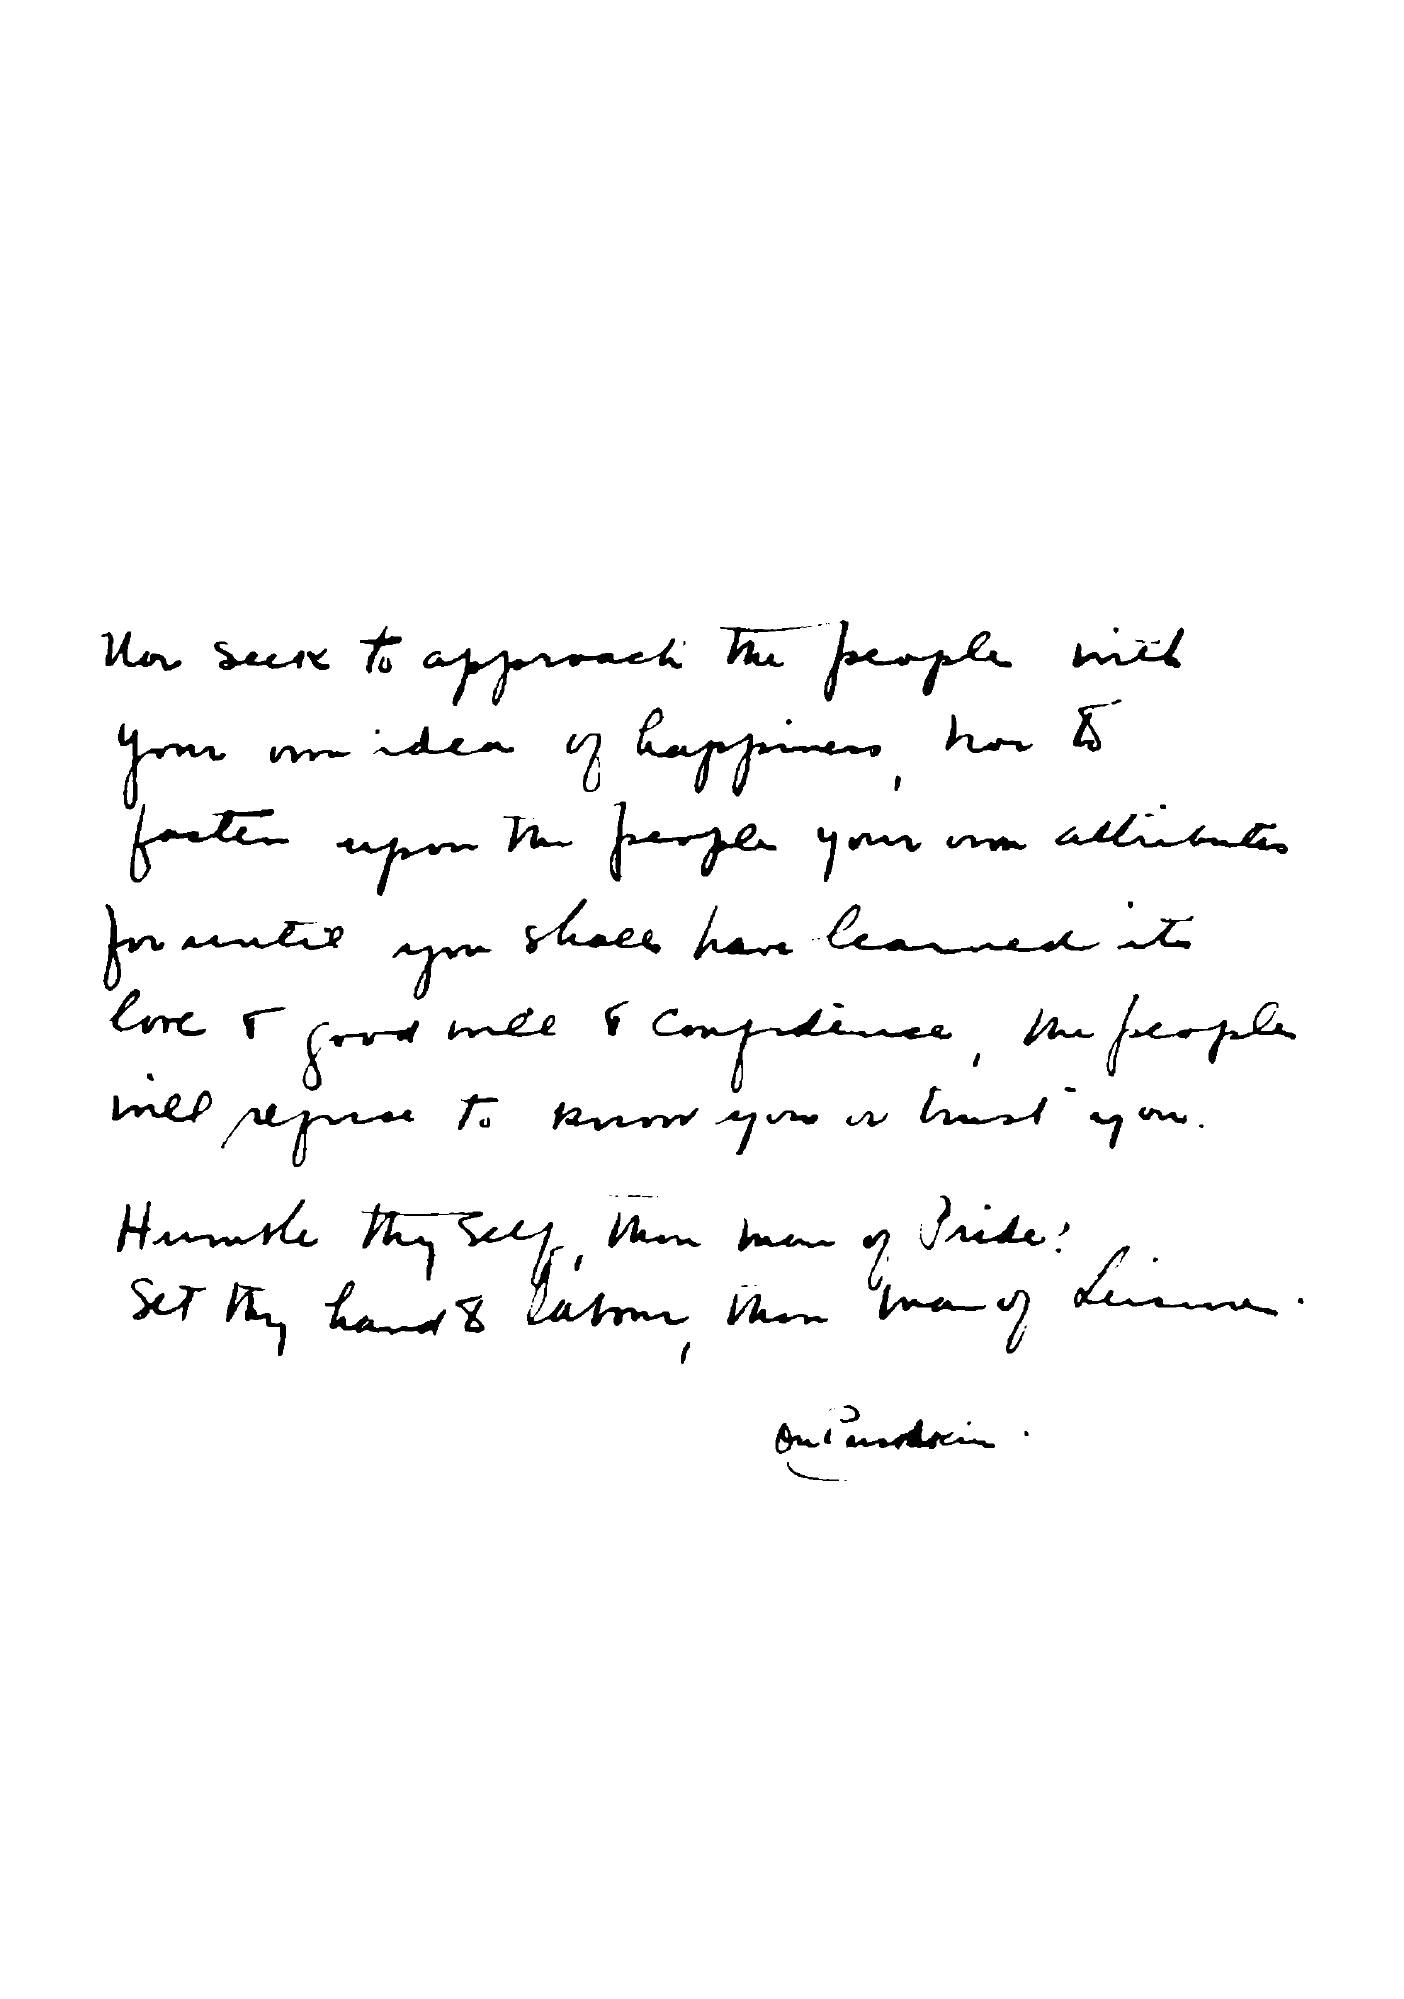 Nor seek to approach the people with
your own idea of happiness, nor to
fasten upon the people your own attributes
for until you shall have learned its
love & good will & confidence, the people
will refuse to know you or trust you.
Humble thy self, thou man of Pride!
Set thy hand to labour, thou man of Leisure.
On Pushkin.